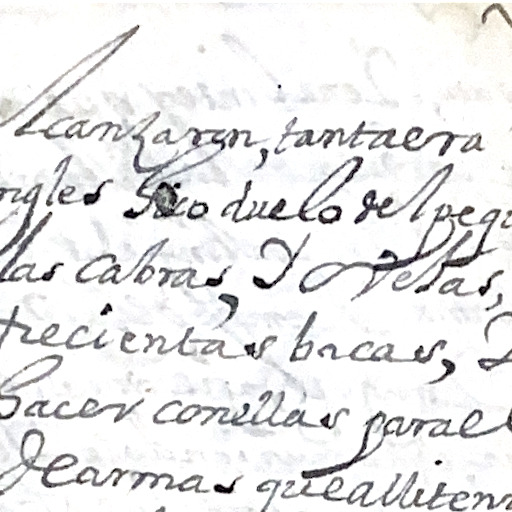 Alcanzaron, tanta era
ngles hizo duelo del pequ
las cabras, Y ovejas,
trecientas bacas, Y
hacer con ellas para el
de armas que alli ten